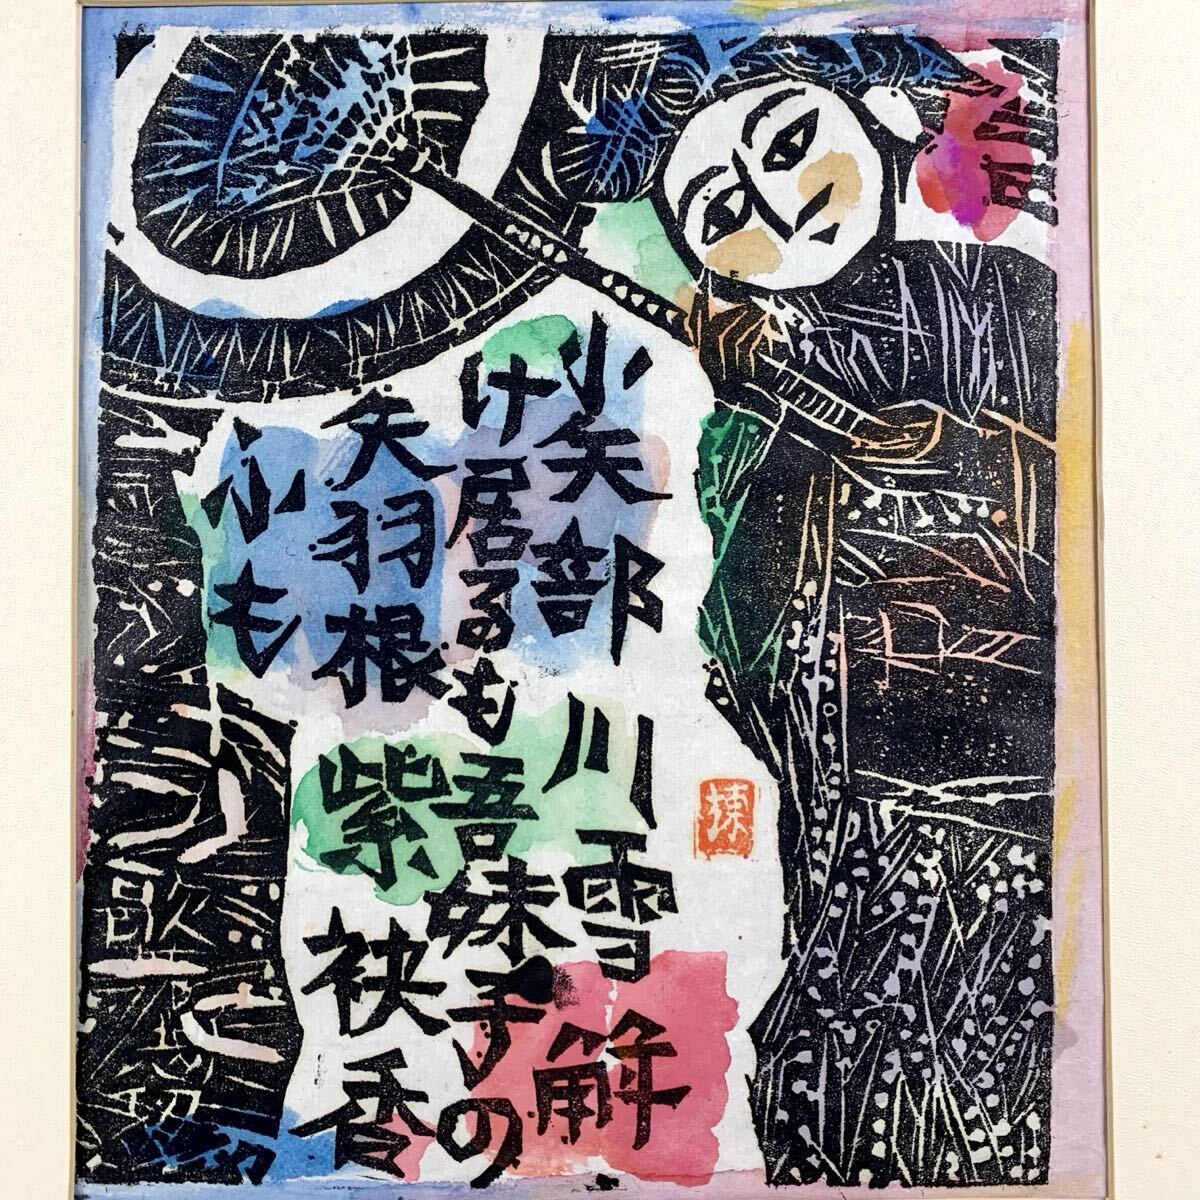 小矢部川雪解
け居るも吾妹子の
矢羽根紫袂香
ふも
棟